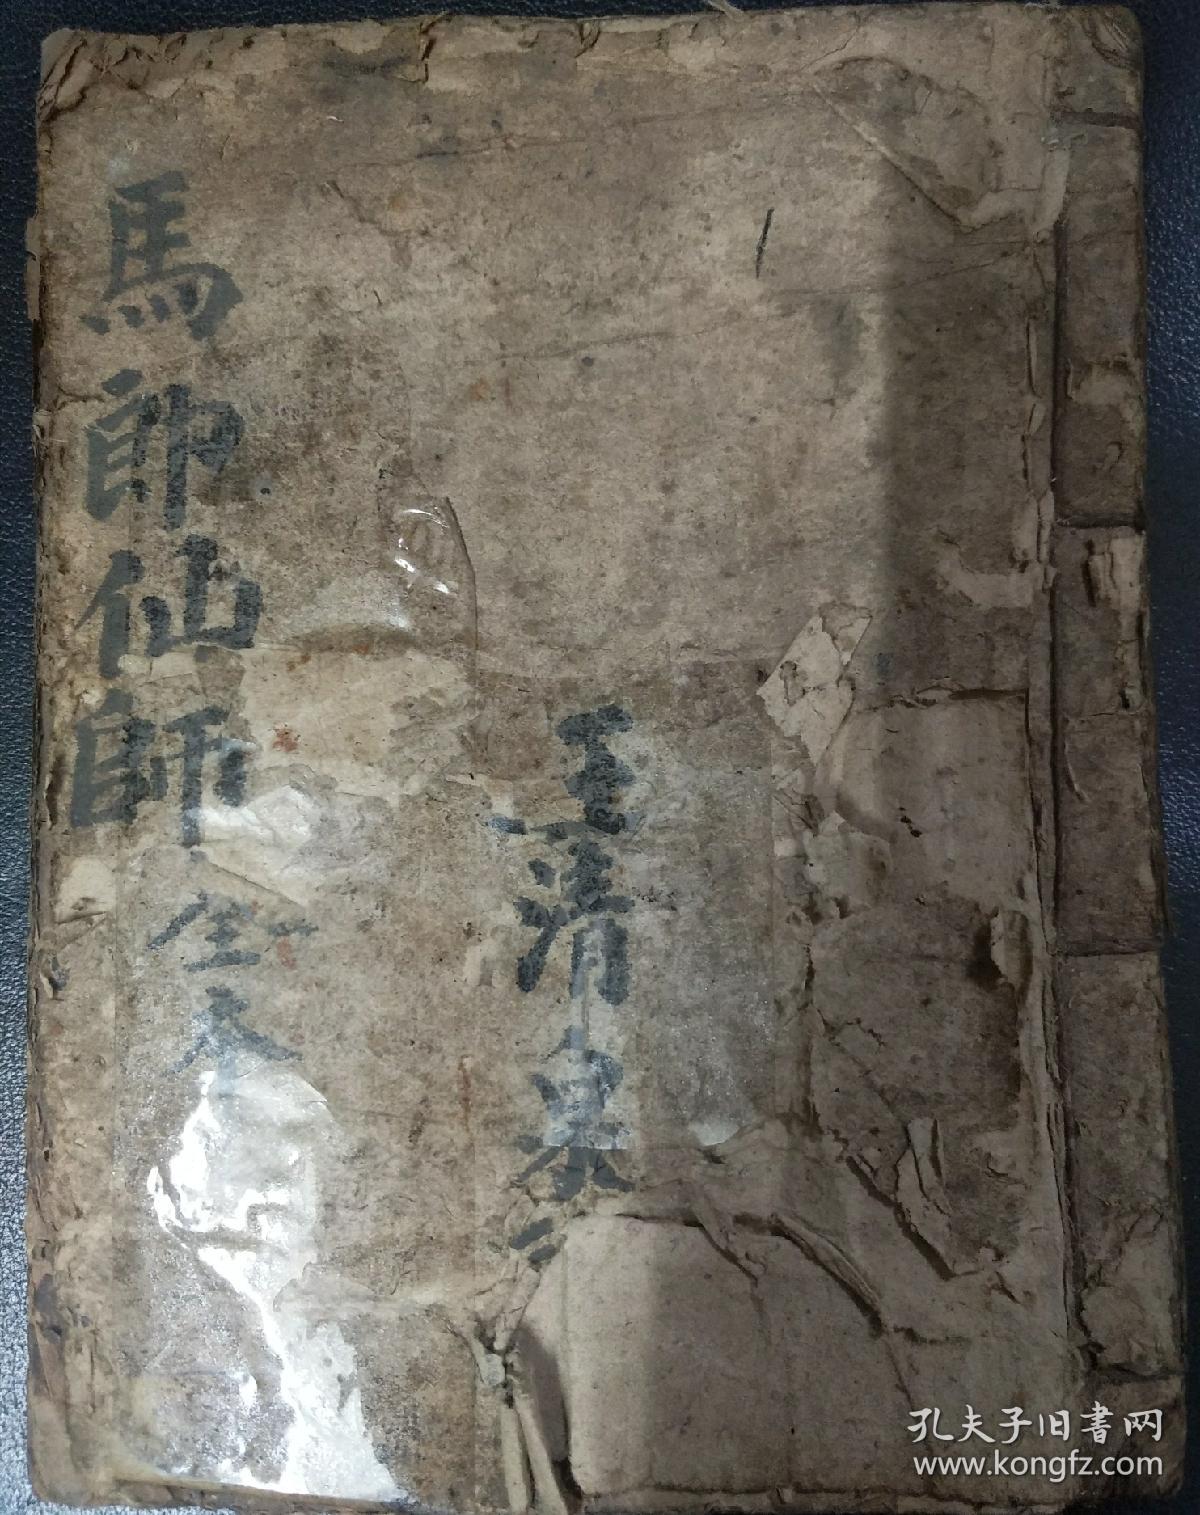 馬帥仙師全本
王清泉
孔夫子旧書网
www.kongfz.com